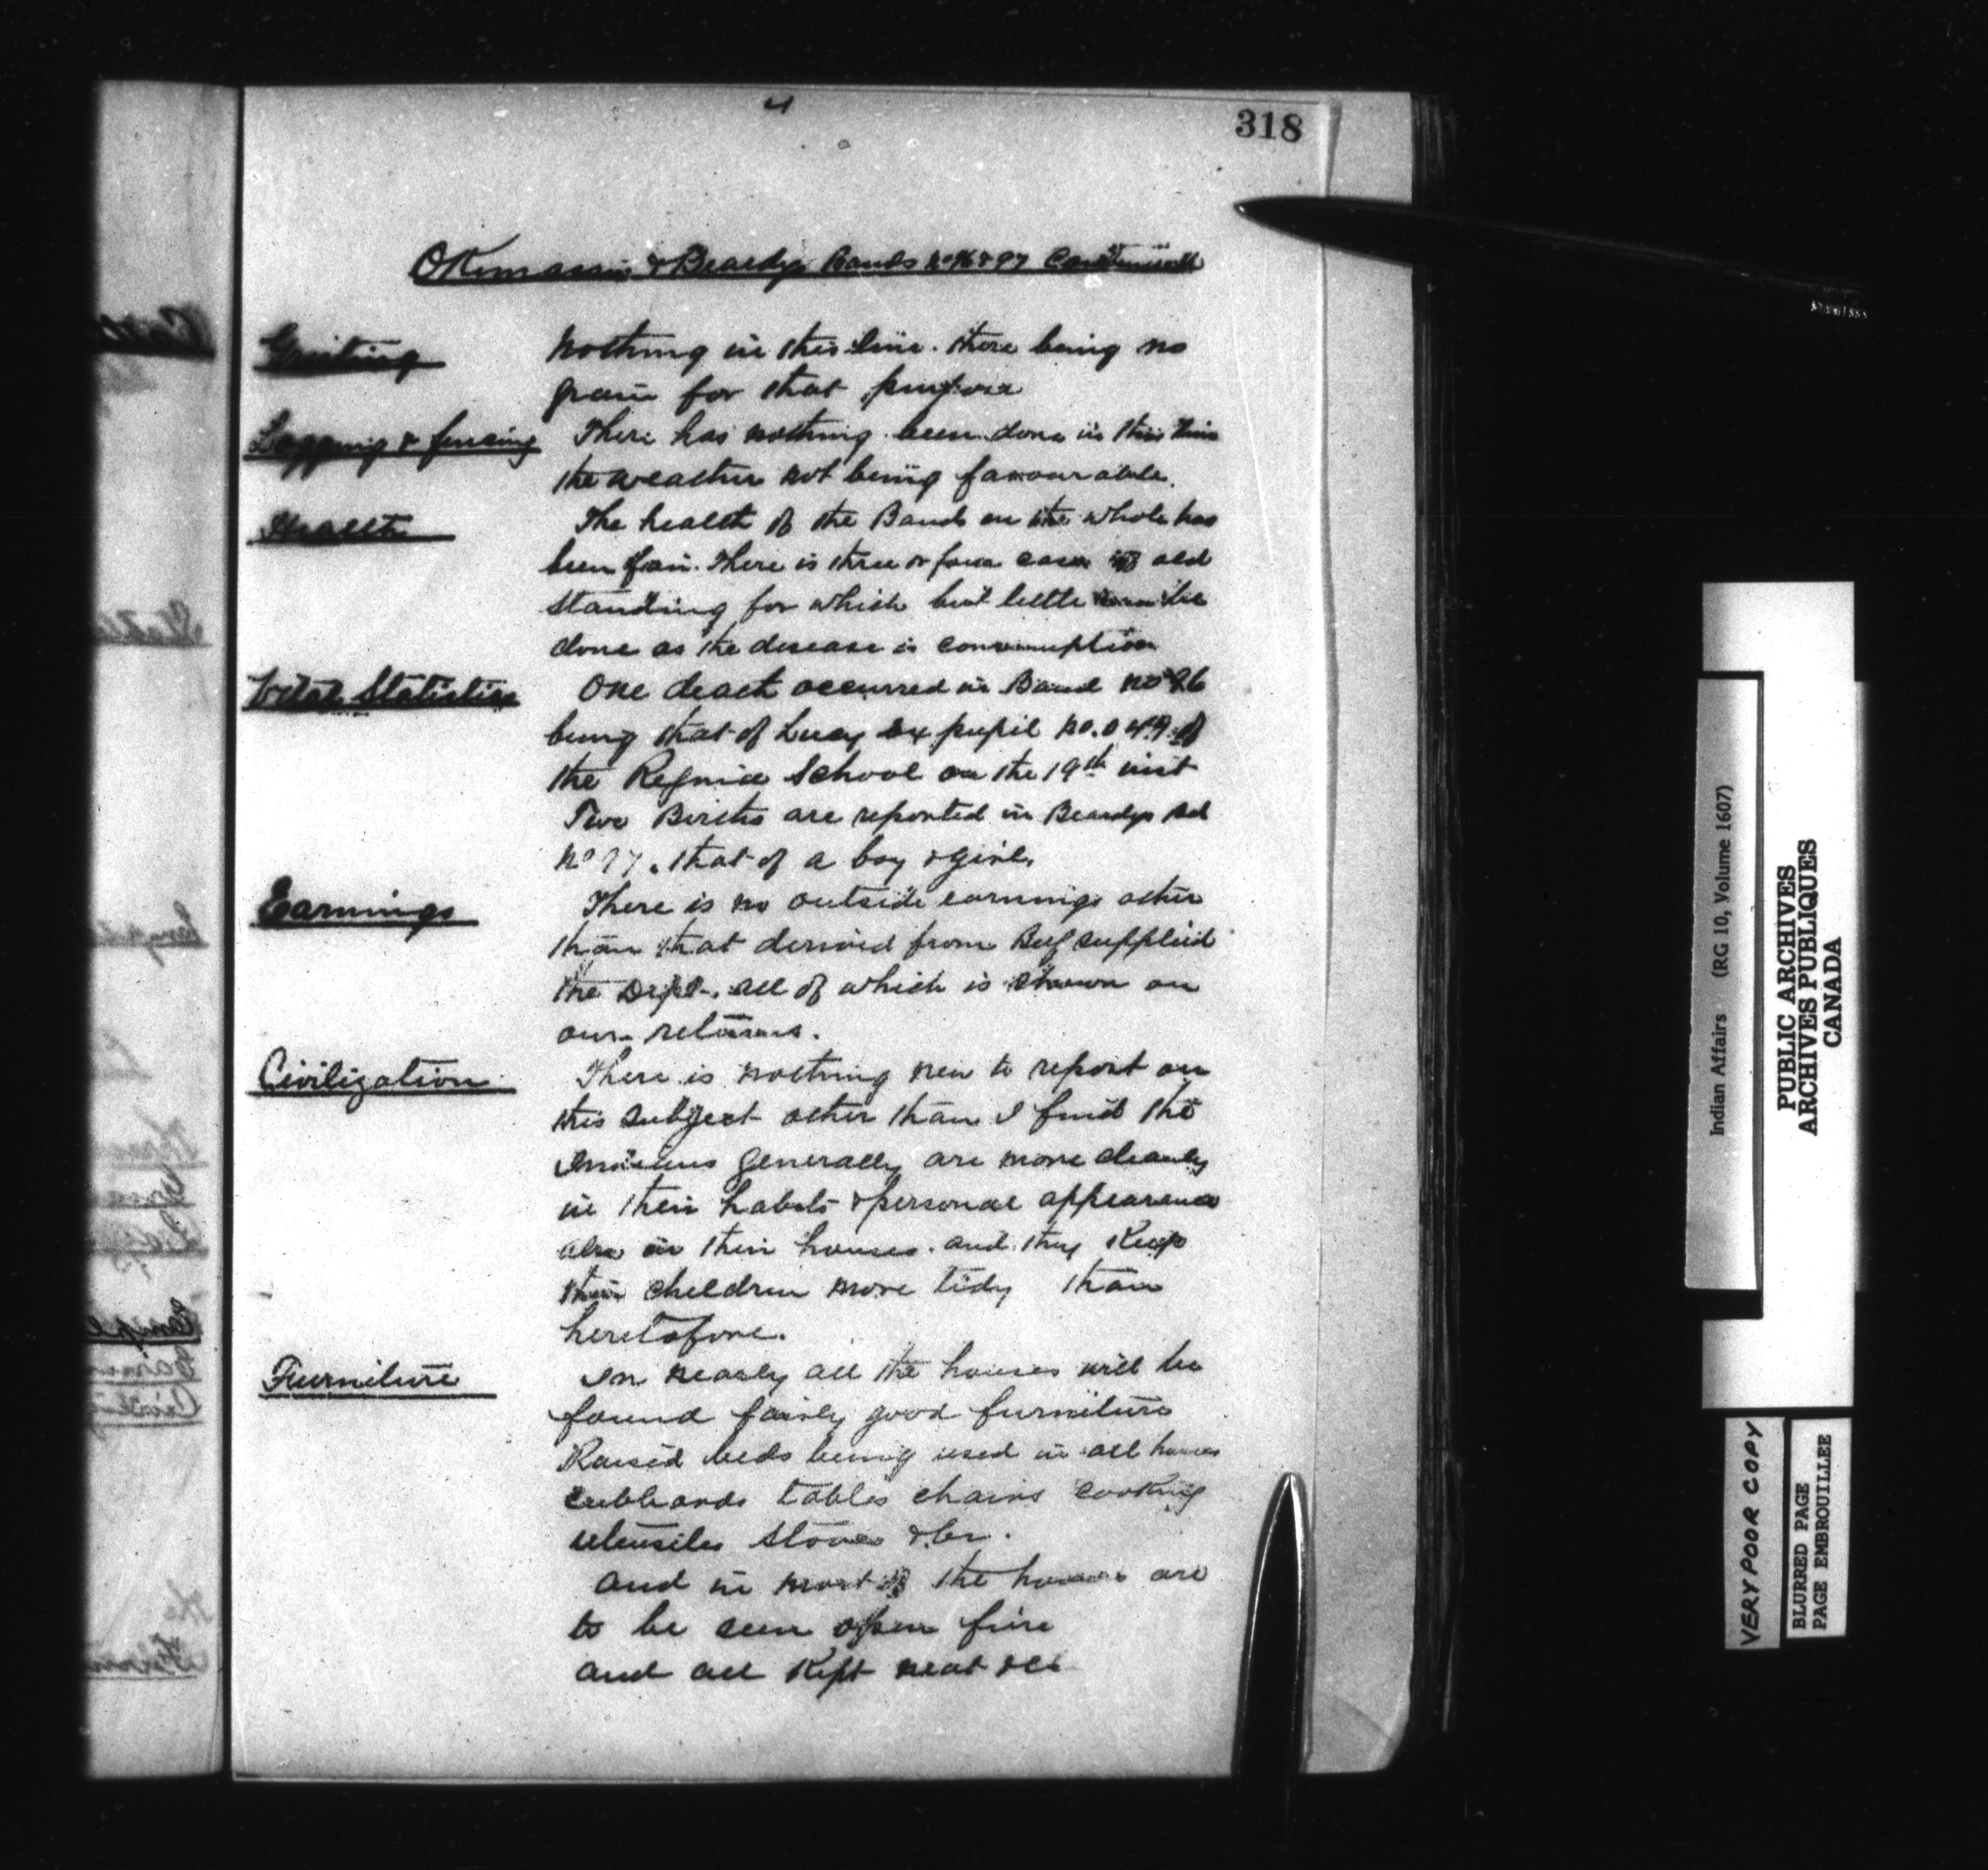 4
318
Okemassis & Beardys Bands No 96 & 97 Continued
Gristing Nothing in this line. there being no
grain for that purpose
Logging & fencing There has nothing been done in this line
the weather not being favourable.
Health The health of the Bands on the whole has
been fair. There is three or four cases of old
standing for which but little can be
done as the disease is consumption
Vital Statistics One death occurred in Band No 96
being that of Lucy Ex pupil No. 049 of
the Regina School on the 19th inst
Two Births are reported in Beardys Bd
No 97. that of a boy & girl.
Earnings There is no outside earnings other
than that derived from Beef supplied
the Dept. all of which is shown on
our returns.
Civilization There is nothing new to report on
this subject other than I find the
Indians generally are more cleanly
in their habits & personal appearance
also in their houses. and they Keep
their children more tidy than
heretofore.
Furniture In nearly all the houses will be
found fairly good furniture
Raised beds being used in all houses
cubboards tables chairs cooking
utensiles stoves &c.
and in most of the houses are
to be seen open fire
and all Kept neat &c
Indian Affairs (RG 10, Volume 1607)
PUBLIC ARCHIVES
ARCHIVES PUBLIQUES
CANADA
VERY POOR COPY
BLURRED PAGE
PAGE EMBROUILLEE